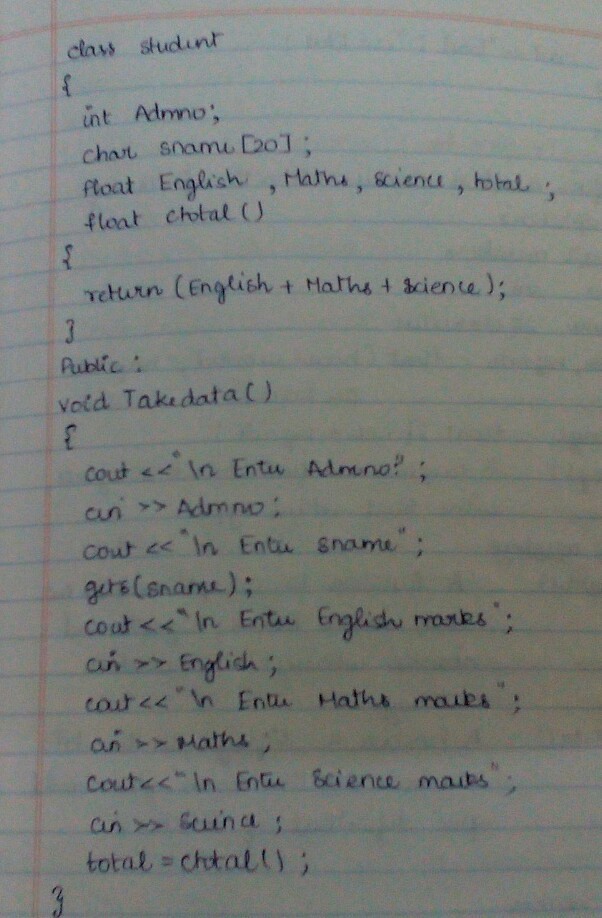 class student
{
int Admno;
char sname [20] ;
float English , Maths, Science, total ;
float ctotal ()
{
return (English + Maths + Science);
}
Public :
void Takedata ()
{
cout << "\n Enter Admno" ;
cin >> Admno ;
cout << "\n Enter sname" ;
gets (sname) ;
cout << "\n Enter English marks" ;
cin >> English ;
cout << "\n Enter Maths marks" ;
cin >> Maths ;
cout << "\n Enter Science marks" ;
cin >> Science ;
total = ctotal () ;
}